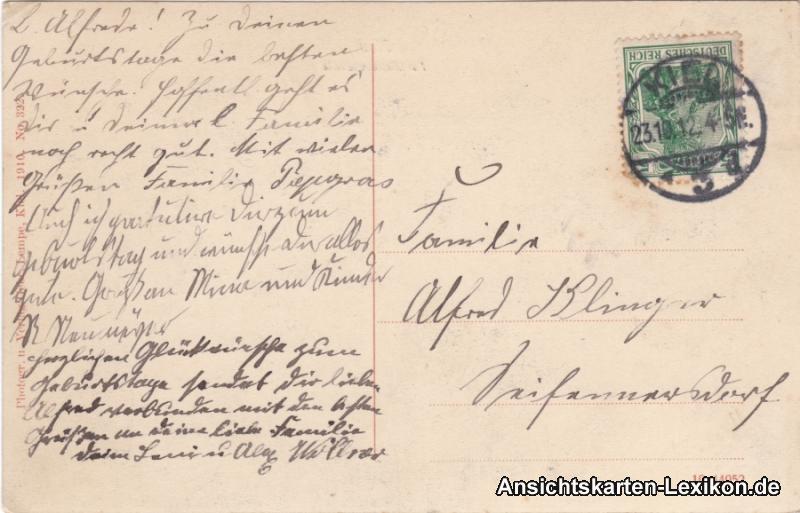 L. Alfrede! Zu Deinem
Geburtstage die besten
Wünsche. Hoffentl. geht es
Dir u. Deiner l. Familie
noch recht gut. Mit vielen
Grüßen Familie
Auch ich gratuliere Dir zum
Geburtstag und wünsche Dir alles
gute. Gruß an Mine und Kinder
R. Neumeyer
herzlichen Glückwünsche zum
Geburtstage sendet dir lieber
Alfred verbunden mit den besten
Grüßen an deine liebe Familie
dein u Alex
Photogr. u. Kiel, 1910. No. 322
DEUTSCHES REICH
KIEL
23.10.12. 4-5N.
Familie
Alfred Klinger
Seifennersdorf
Ansichtskarten-Lexikon.de